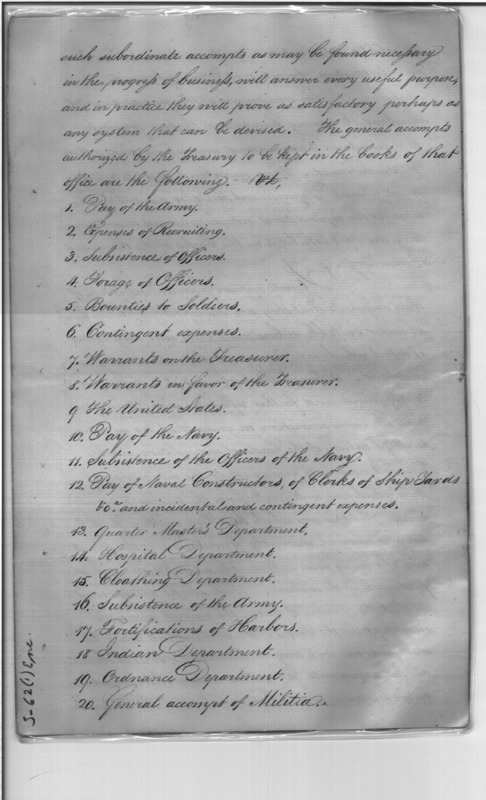 such subordinate accompts as may be found necessary
in the progress of business, will answer every useful purpose,
and in practice they will prove as satisfactory perhaps as
any system that can be devised. The general accompts
authorized by the Treasury to be kept in the books of that
office are the following.
1. Pay of the Army.
2. Expenses of Recruiting.
3. Subsistence of Officers.
4. Forage of Officers.
5. Bounties to Soldiers.
6. Contingent expenses.
7. Warrants on the Treasurer.
8. Warrants in favor of the Treasurer.
9 The United States.
10. Pay of the Navy.
11. Subsistence of the Officers of the Navy.
12. Pay of Naval Constructors, of Clerks of Ship Yards
and incidental and contingent expenses.
13. Quarter Master's Department,
14. Hospital Department.
15. Cloathing Department.
16. Subsistence of the Army.
17. Fortifications of Harbors.
18 Indian Department.
19. Ordnance Department.
20. General accompt of Militia.
S-62(1) Enc.